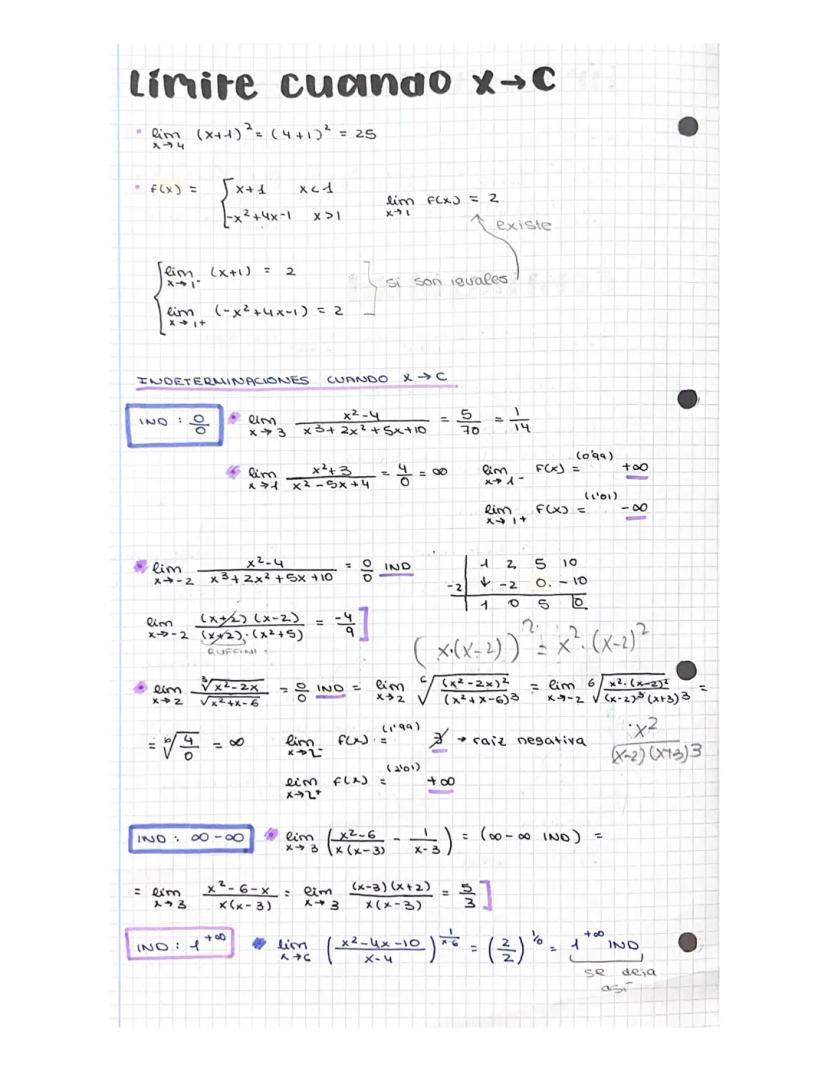 Límite cuando x→c
lim x→4 (x+1)² = (4+1)² = 25
f(x) = { x+1 x<1
-x²+4x-1 x>1 lim x→1 f(x) = 2
existe
{ lim x→1⁻ (x+1) = 2
lim x→1⁺ (-x²+4x-1) = 2
si son iguales
INDETERMINACIONES CUANDO x→c
IND : 0/0
lim x→3 (x²-4)/(x³+2x²+5x+10) = 5/70 = 1/14
lim x→1 (x²+3)/(x²-5x+4) = 4/0 = ∞ lim x→1⁻ f(x) = (0'99) +∞
lim x→1⁺ f(x) = (1'01) -∞
lim x→-2 (x²-4)/(x³+2x²+5x+10) = 0/0 IND
1 2 5 10
-2 ↓ -2 0 -10
1 0 5 0
lim x→-2 (x+2)(x-2)/(x+2)·(x²+5) = -4/9 ]
RUFFINI
(x·(x-2))² = x²·(x-2)²
lim x→2 ∛(x²-2x)/√(x²+x-6) = 0/0 IND = lim x→2 ⁶√((x²-2x)²/(x²+x-6)³) = lim x→-2 ⁶√(x²·(x-2)²/(x-2)³(x+3)³) =
= ⁶√(4/0) = ∞ lim x→2⁻ f(x) = (1'99) ∄ → raiz negativa
·x²/(x-2)(x+3)3
lim x→2⁺ f(x) = (2'01) +∞
IND : ∞-∞
lim x→3 ((x²-6)/(x(x-3)) - 1/(x-3)) = (∞-∞ IND) =
= lim x→3 (x²-6-x)/(x(x-3)) = lim x→3 (x-3)(x+2)/(x(x-3)) = 5/3 ]
IND : 1⁺∞
lim x→6 ((x²-4x-10)/(x-4))^(1/(x-6)) = (2/2)^(1/0) = 1⁺∞ IND
se deja
así